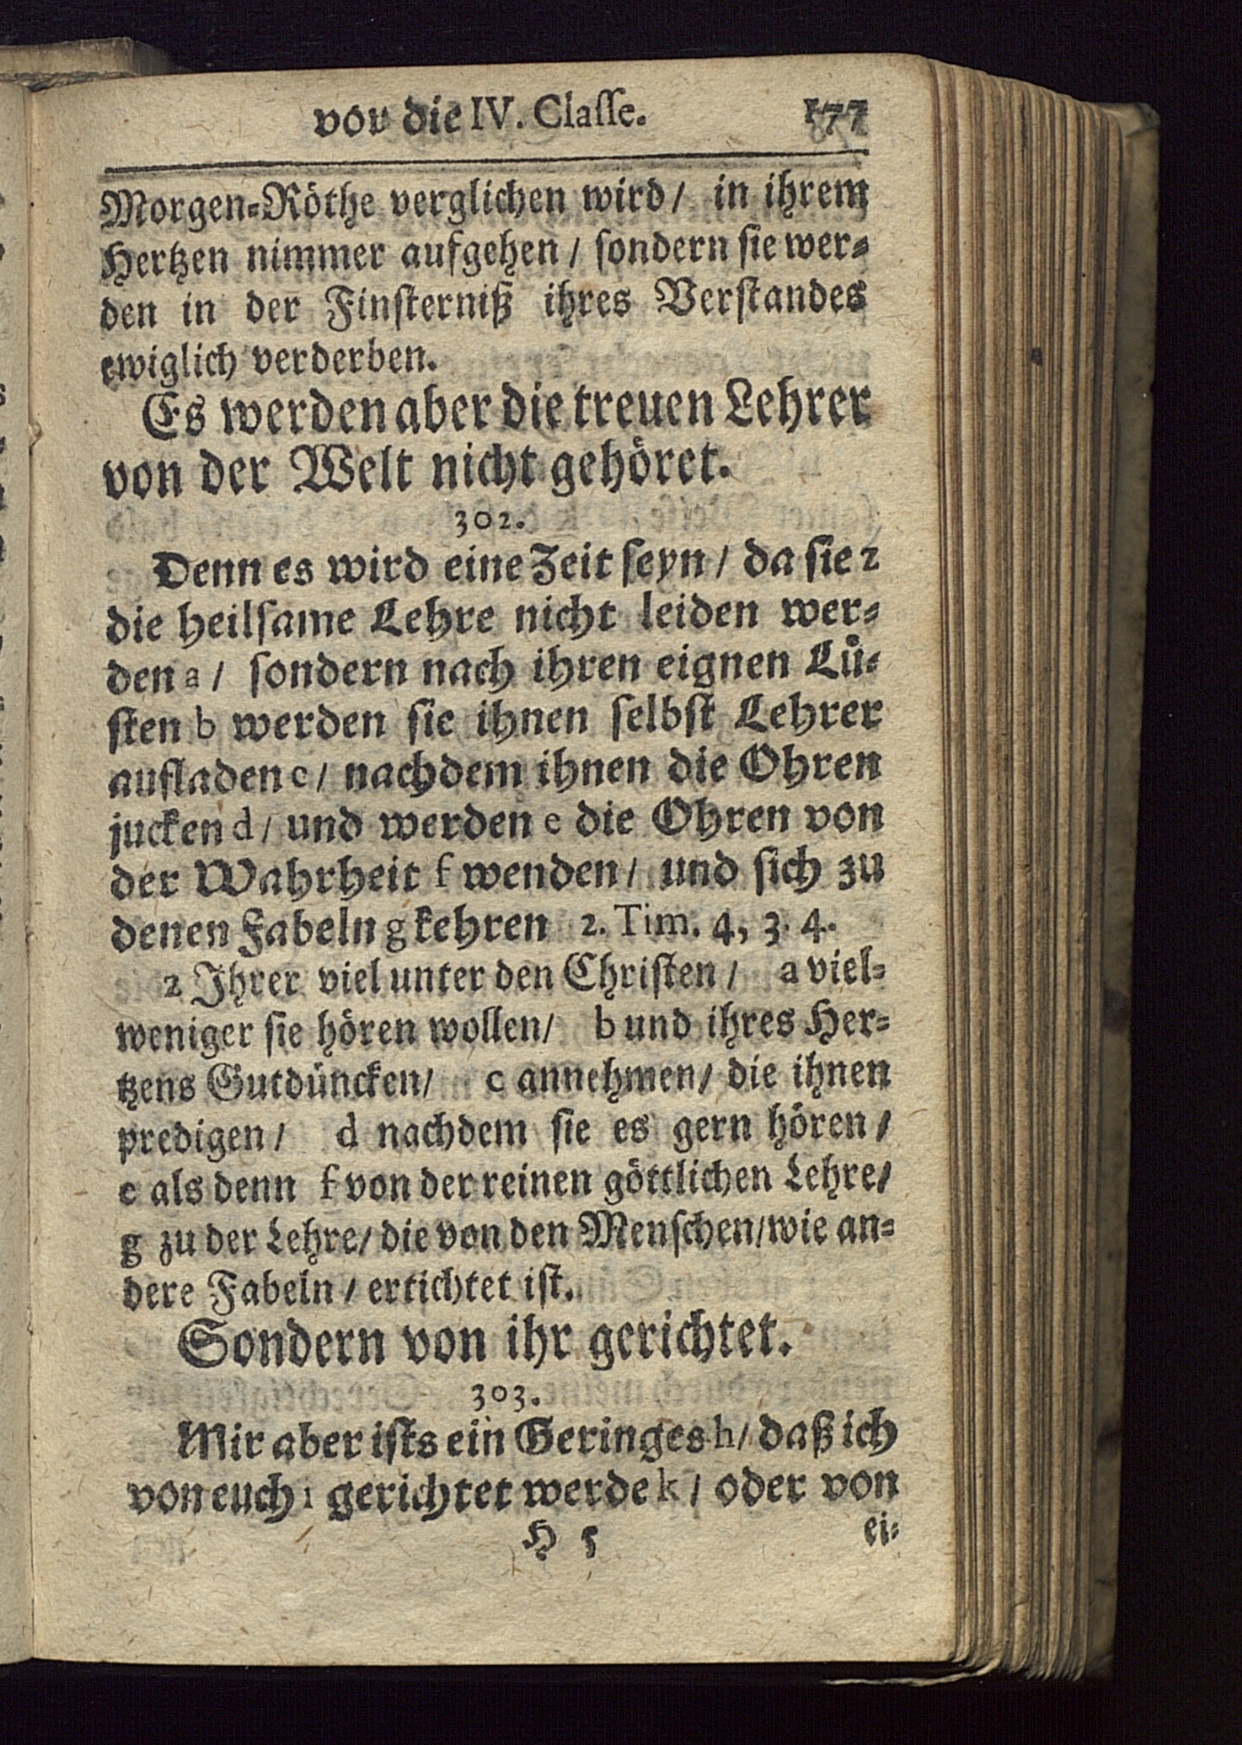 vor die IV. Classe. 177
Morgen-Röthe verglichen wird / in ihrem
Hertzen nimmer aufgehen / sondern sie wer-
den in der Finsterniß ihres Verstandes
ewiglich verderben.
Es werden aber die treuen Lehrer
von der Welt nicht gehöret.
302.
Denn es wird eine Zeit seyn / da sie z
die heilsame Lehre nicht leiden wer-
den a / sondern nach ihren eignen Lü-
sten b werden sie ihnen selbst Lehrer
aufladen c / nachdem ihnen die Ohren
jucken d / und werden e die Ohren von
der Wahrheit f wenden / und sich zu
denen Fabeln g kehren 2. Tim. 4, 3. 4.
z Ihrer viel unter den Christen / a viel-
weniger sie hören wollen / b und ihres Her-
tzens Gutdüncken / c annehmen / die ihnen
predigen / d nachdem sie es gern hören /
e als denn f von der reinen göttlichen Lehre /
g zu der Lehre / die von den Menschen / wie an-
dere Fabeln / ertichtet ist.
Sondern von ihr gerichtet.
303.
Mir aber ists ein Geringes h / daß ich
von euch i gerichtet werde k / oder von
H 5 ei-